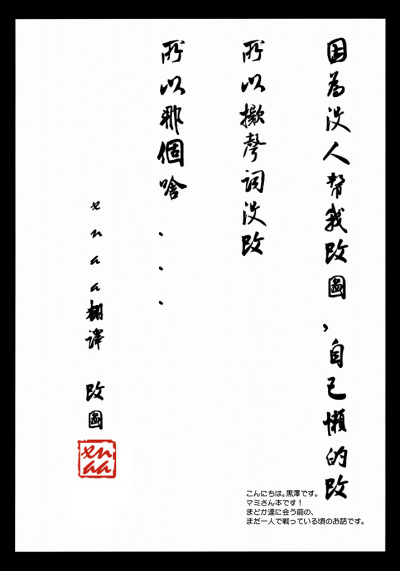 因為沒人幫我改圖，自己懶的改
所以擬聲詞沒改
所以那個啥...
xnaa翻譯 改圖
xn
aa
こんにちは。黒澤です。
マミさん本です！
まどか達に会う前の、
まだ一人で戦っている頃のお話です。